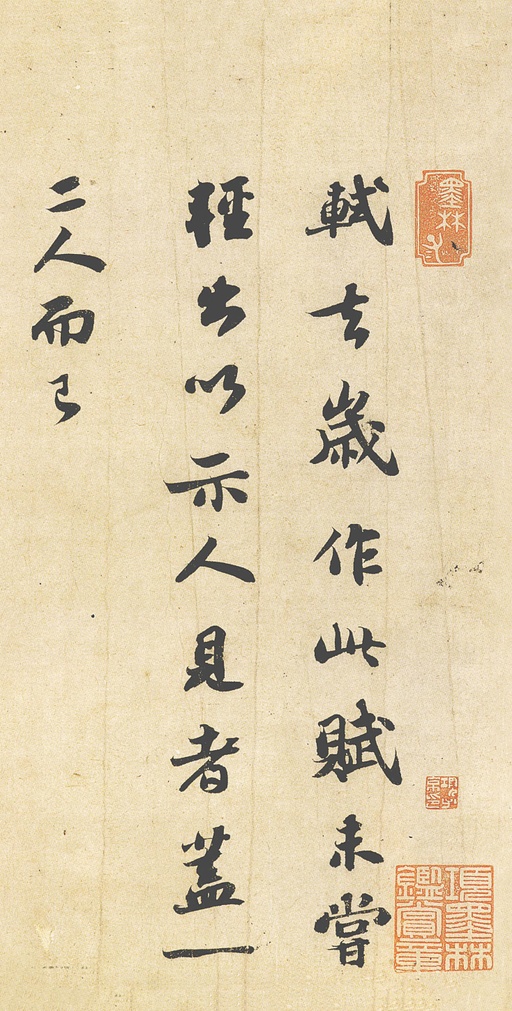 軾去歲作此賦未嘗
輕出以示人見者蓋一
二人而已
墨林
項墨林鑑賞章